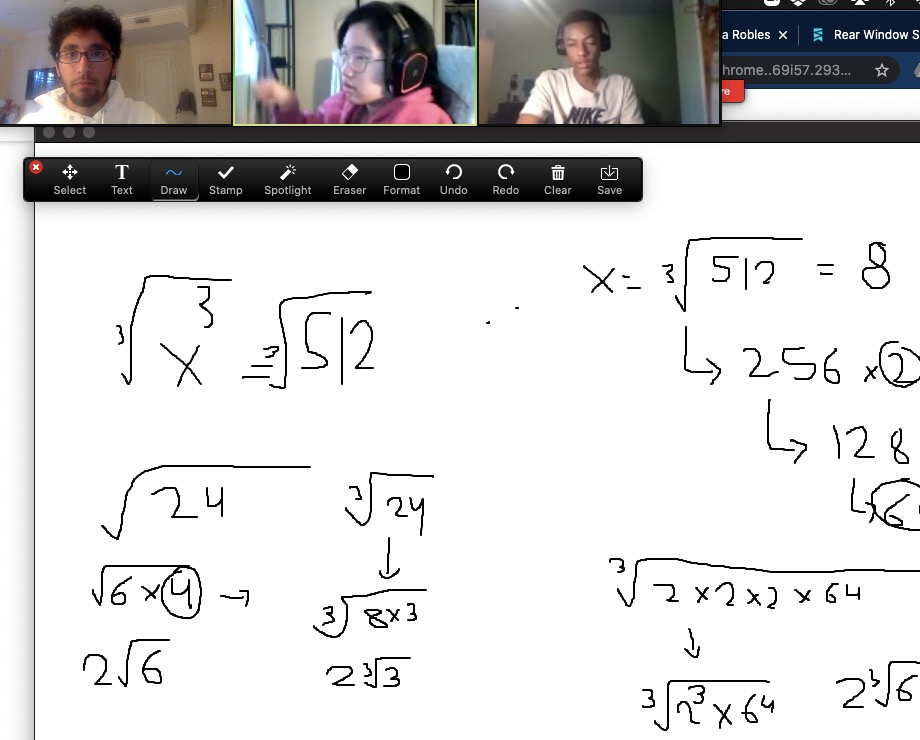 a Robles ×
Rear Window S
hrome..69i57.293...
NIKE
Select Text Draw Stamp Spotlight Eraser Format Undo Redo Clear Save
∛x³ = ∛512
x = ∛512 = 8
↳ 256 × 2
↳ 128
↳ 6
√24
∛24
↓
√6 × 4 →
∛8×3
2√6
2∛3
∛2 × 2 × 2 × 64
↓
∛2³ × 64
2∛6